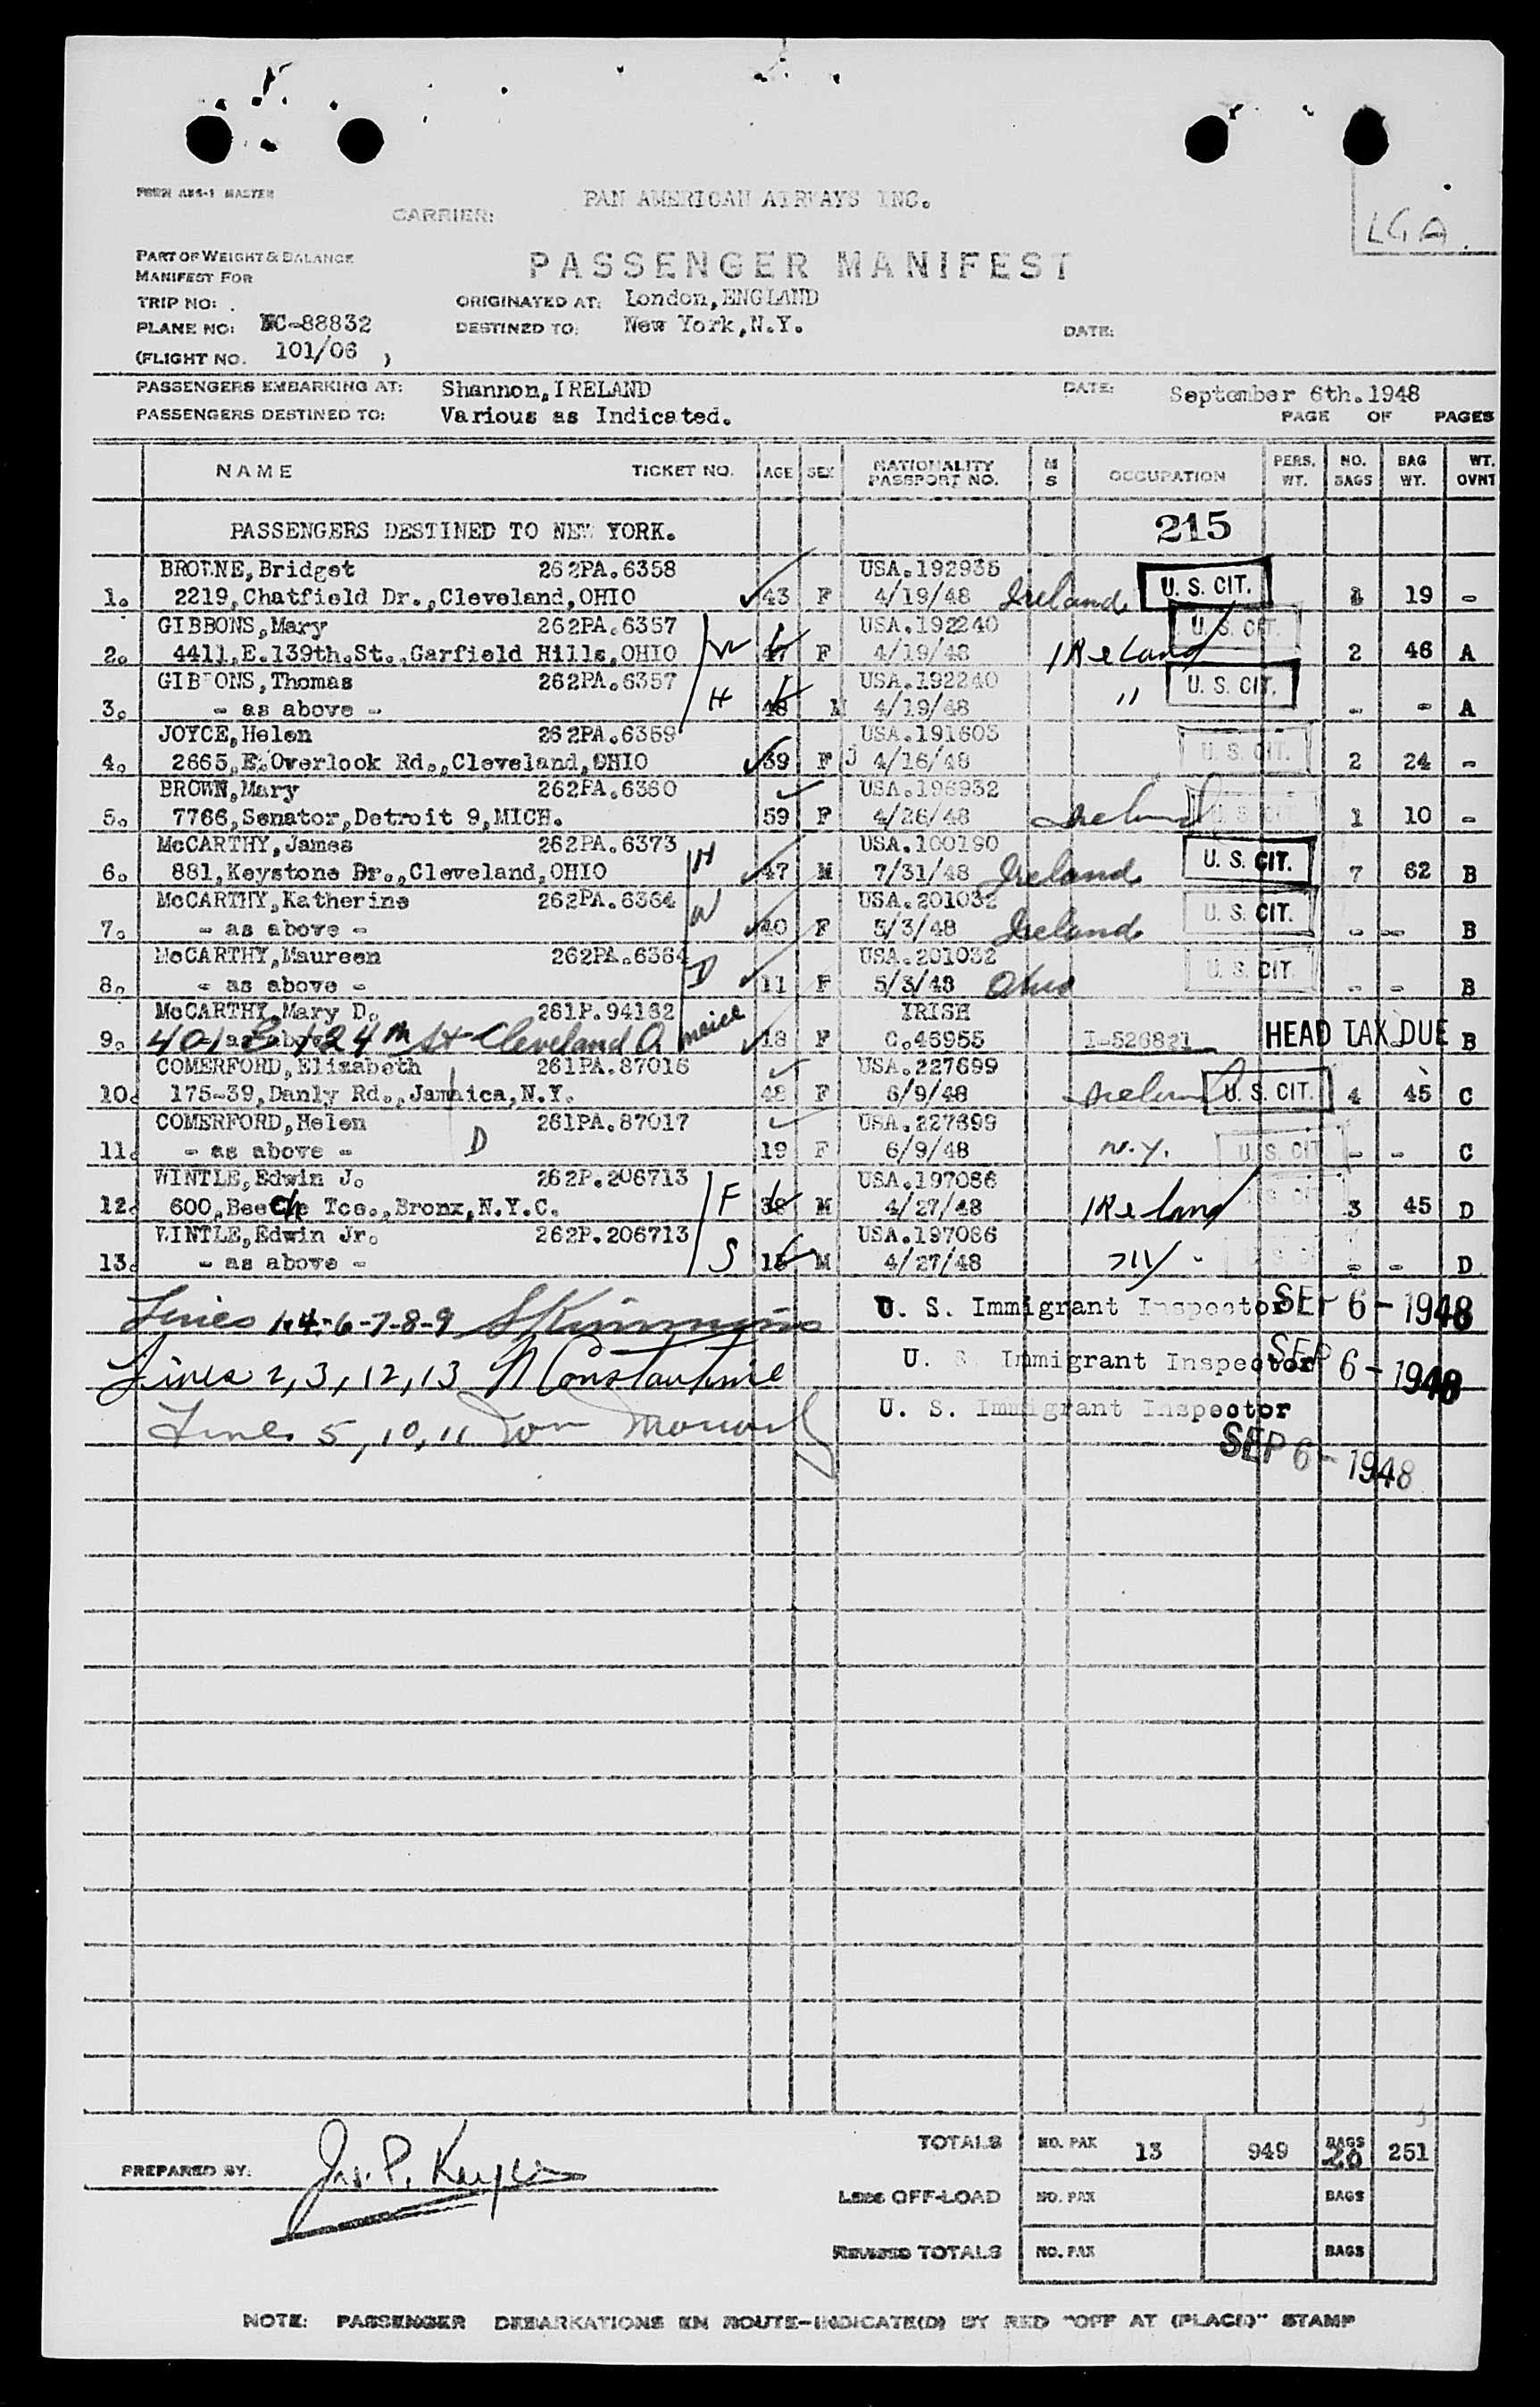 FORM AB4-1 MASTER
CARRIER: PAN AMERICAN AIRWAYS INC.
LGA.
PART OF WEIGHT & BALANCE
MANIFEST FOR
PASSENGER MANIFEST
TRIP NO: . ORIGINATED AT: London, ENGLAND
PLANE NO: NC-88832 DESTINED TO: New York, N.Y. DATE:
(FLIGHT NO. 101/06 )
PASSENGERS EMBARKING AT: Shannon, IRELAND DATE: September 6th. 1948
PASSENGERS DESTINED TO: Various as Indicated. PAGE OF PAGES
NAME TICKET NO. AGE SEX NATIONALITY PASSPORT NO. M S OCCUPATION PERS. WT. NO. BAGS BAG WT. WT. OVNT
PASSENGERS DESTINED TO NEW YORK. 215
BROWNE, Bridget 262PA.6358 USA.192935
1. 2219, Chatfield Dr., Cleveland, OHIO 43 F 4/19/48 Ireland U. S. CIT. 1 19 -
GIBBONS, Mary 262PA.6357 USA.192240 U. S. CIT.
2. 4411, E.139th.St., Garfield Hills, OHIO W 47 F 4/19/48 IReland 2 46 A
GIBBONS, Thomas 262PA.6357 USA.192240 U. S. CIT.
3. - as above - H 48 M 4/19/48 " - - A
JOYCE, Helen 262PA.6359 USA.191605
4. 2665, E.Overlook Rd., Cleveland, OHIO 39 F J 4/16/48 U. S. CIT. 2 24 -
BROWN, Mary 262PA.6360 USA.196932
5. 7766, Senator, Detroit 9, MICH. 59 F 4/26/48 Ireland U. S. CIT. 1 10 -
McCARTHY, James 262PA.6373 H USA.100190
6. 881, Keystone Dr., Cleveland, OHIO 47 M 7/31/48 Ireland U. S. CIT. 7 62 B
McCARTHY, Katherine 262PA.6364 W USA.201032
7. - as above - 40 F 5/3/48 Ireland U. S. CIT. - - B
McCARTHY, Maureen 262PA.6364 D USA.201032
8. - as above - 11 F 5/3/48 Ohio U. S. CIT. - - B
McCARTHY, Mary D. 261P.94162 neice IRISH
9. - as above - 401 E 124th St Cleveland O 18 F C.46955 I-526821 HEAD TAX DUE B
COMERFORD, Elizabeth 261PA.87016 USA.227699
10. 175-39, Danly Rd., Jamaica, N.Y. 48 F 6/9/48 Ireland U. S. CIT. 4 45 C
COMERFORD, Helen 261PA.87017 USA.227699
11. - as above - D 19 F 6/9/48 N.Y. U. S. CIT - - C
WINTLE, Edwin J. 262P.206713 USA.197086
12. 600, Beech Tce., Bronx, N.Y.C. F 38 M 4/27/48 IReland U. S. CIT 3 45 D
WINTLE, Edwin Jr. 262P.206713 USA.197086
13. - as above - S 15 M 4/27/48 NY - U. S. CIT - - D
Lines 1-4-6-7-8-9 U. S. Immigrant Inspector SEP 6 - 1948
Lines 2, 3, 12, 13 N Constantine U. S. Immigrant Inspector SEP 6 - 1948
Lines 5, 10, 11 U. S. Immigrant Inspector
SEP 6 - 1948
TOTALS NO. PAX 13 949 BAGS 20 251
PREPARED BY: Jas. P.
Less OFF-LOAD NO. PAX BAGS
REVISED TOTALS NO. PAX BAGS
NOTE: PASSENGER DEBARKATIONS EN ROUTE-INDICATE(D) BY RED "OFF AT (PLACE)" STAMP